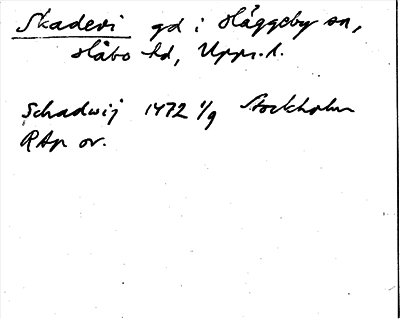 Skadevi gd i Häggeby sn,
Håbo hd, Upps. l.
Schadwij 1472 1/9 Stockholm
RAp or.